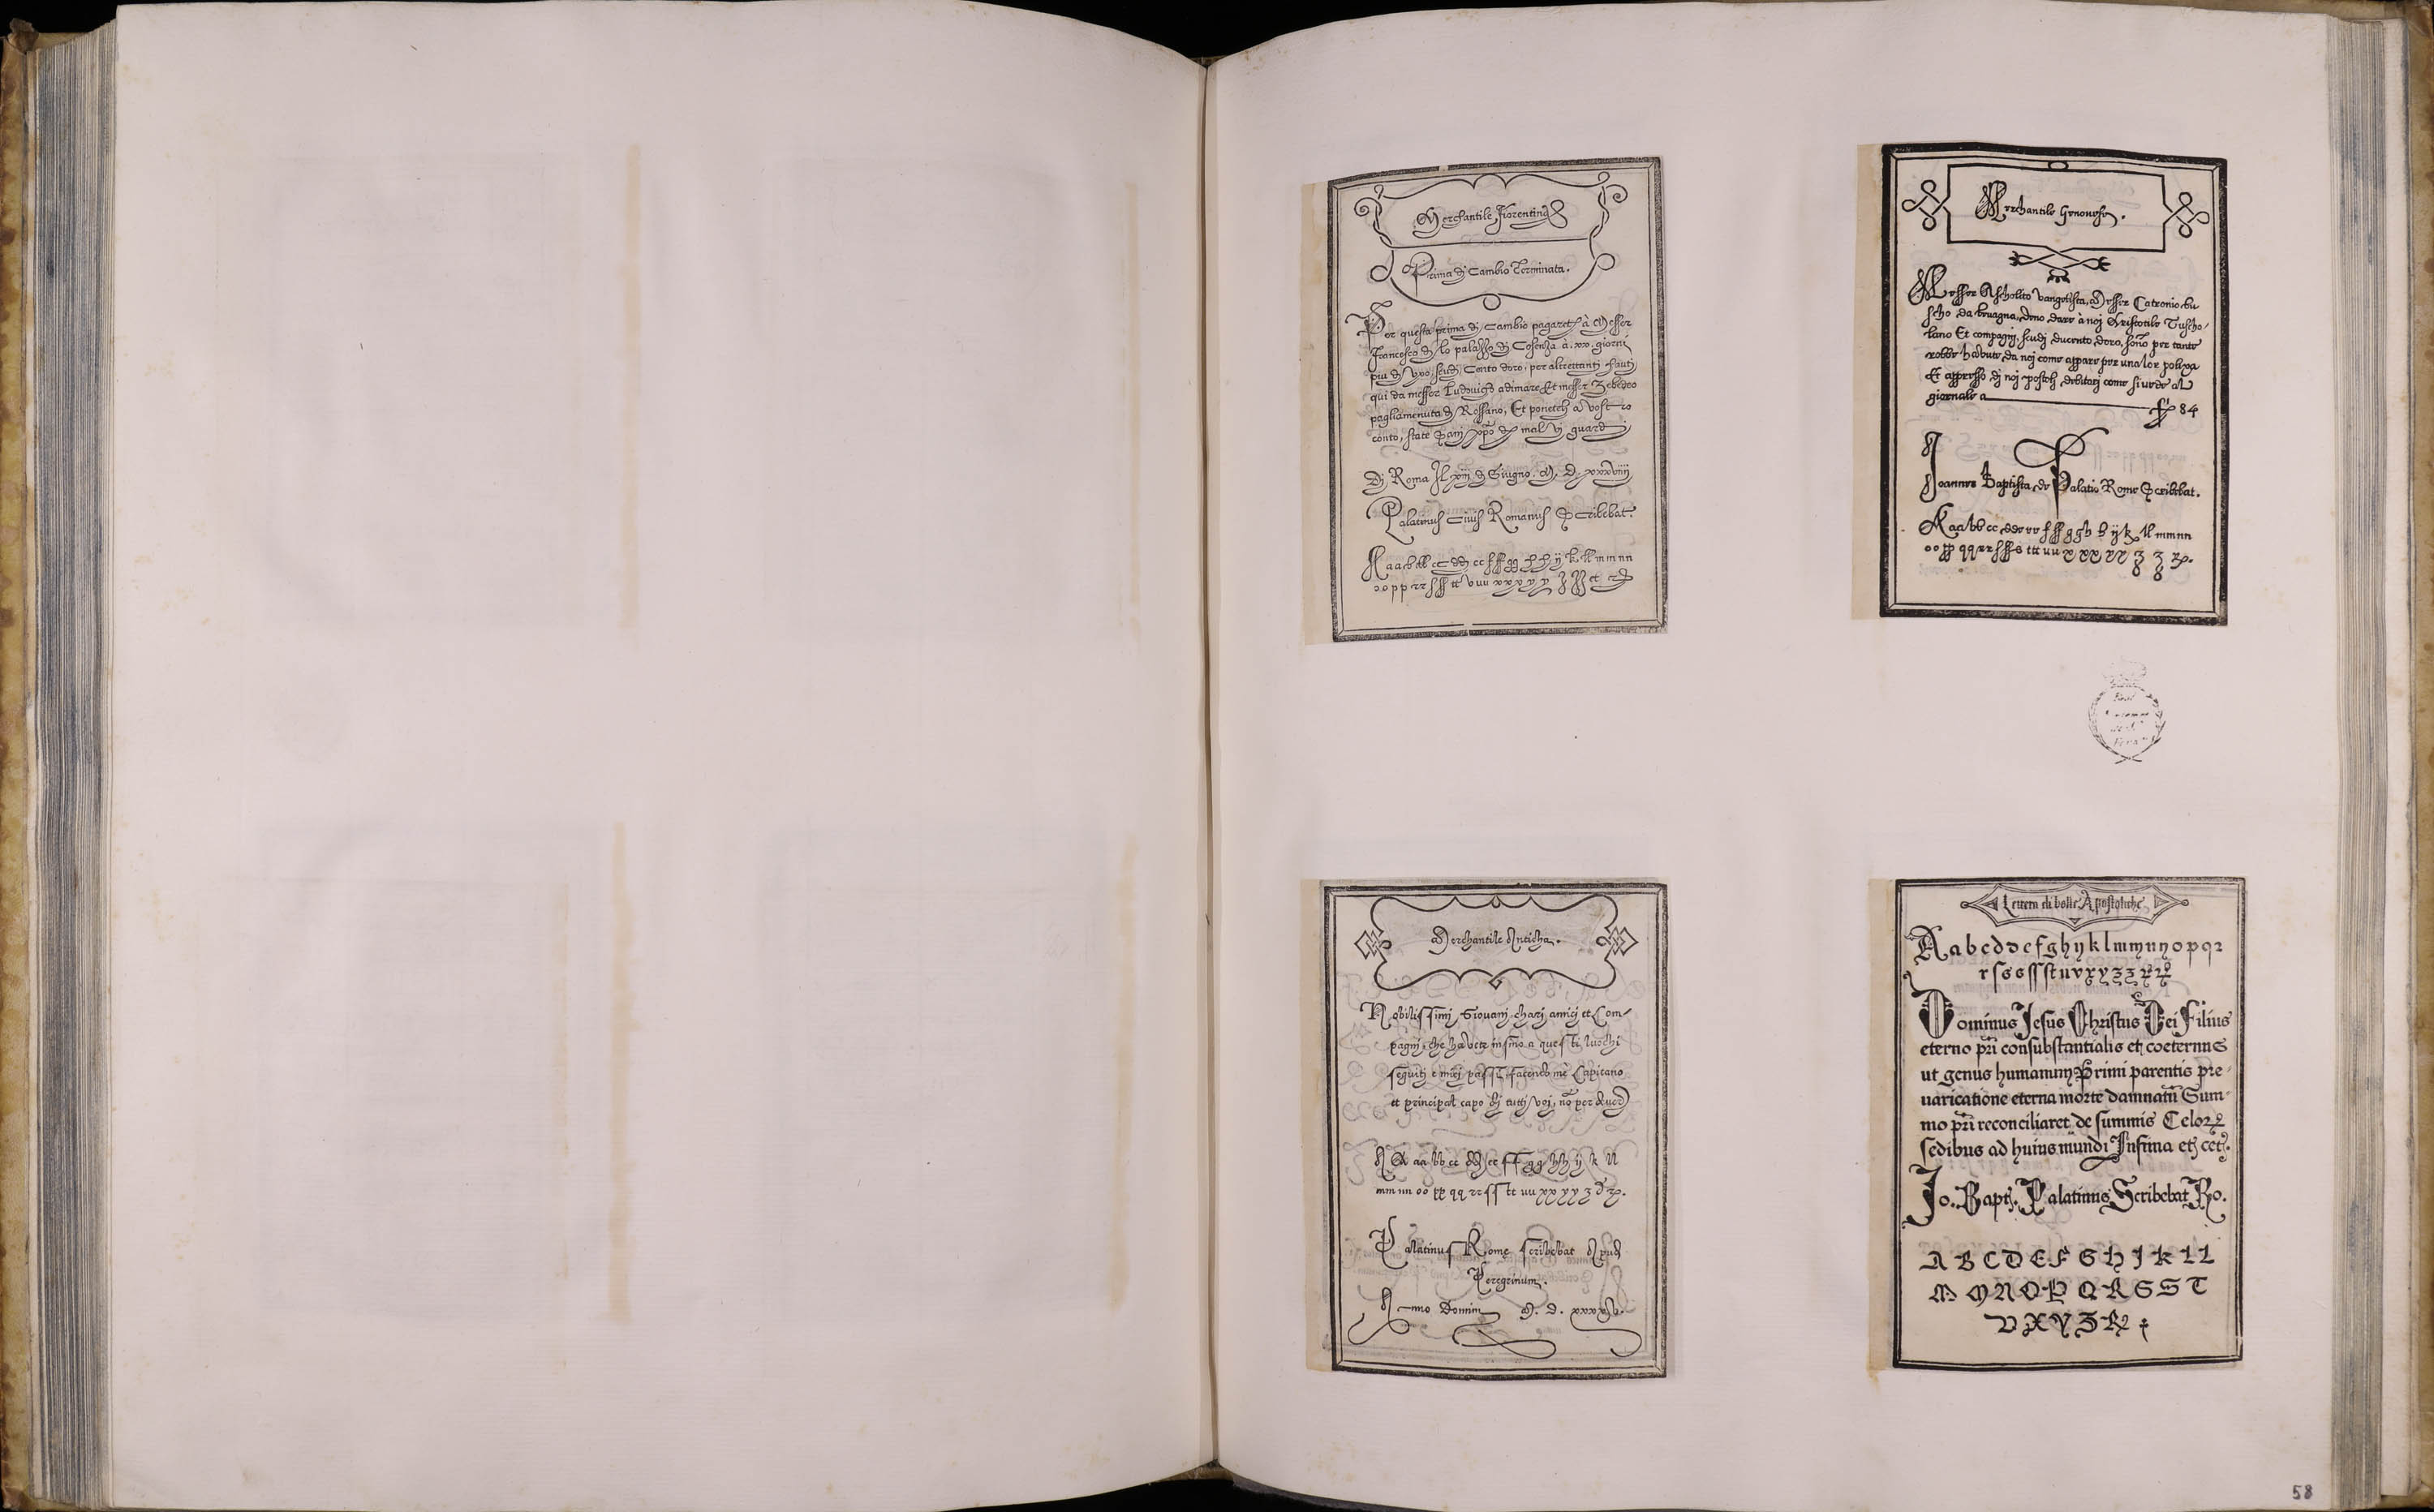 Merchantile Fiorentina
Prima di Cambio Terminata.
Per questa prima di Cambio pagarete à Messer
Francesco di lo palazzo di Cosenza à .xx. giorni
piu di Vxo, scudi Cento doro, per altrettanti hauti
qui da messer Ludouico adimare Et messer Zebedeo
pagliamenuta di Rossano, Et ponete à vostro
conto, state sani xpo di mal vi guardi
Di Roma Il xiij di Giugno. M. D. xxxviiij
Palatinus Ciuis Romanus Scribebat.
A a a b bb cc dd ee ff ff gg h h ij k ll m m n n
o o p p r r ss ff tt v u u x x x y y
Merchantile Genouese.
Messer Ascholito Vangelista, Messer Catronio bu
scho da beuagna, deno dare à noj Aristotile Tuscho-
lano Et compagnj, scudj ducento doro, sono per tante
robbe habute da noj come appare per una lor polixa
Et appresso dj noj postosj debitarj come si uede al
giornale a 84
Joannes Baptista de Palatio Rome Scribebat.
A a a b b c c d d e e ff ff g g h h ij k ll m m n n
o o pp q q r r ss s tt u u x x x x y y z z
Merchantile Anticha.
Nobilissimj Giouanj charj amicj et Com-
pagnj, che hauete insino a questi luochi
seguitj e miej passi facendo me Capitano
et principal capo dj tuttj voj, no per douer
A A a a b b c c dd e e f f g g h h ij k ll
m m n n o o pp q q r r s s tt u u x x y y z
Palatinus Rome scribebat Apud
Peregrinum.
Anno Domini M. D. xxxxV.
Lettera di bolle Apostoliche
A a b c d d e f g h y k l m m n n o p q r
r s s s ss st u v x y z z
Dominus Jesus Christus Dei Filius
eterno pri consubstantialis et coeternus
ut genus humanum Primi parentis pre-
uaricatione eterna morte damnatu Sum-
mo pri reconciliaret de summis Celor
sedibus ad huius mundi Infima et cet.
Jo. Bapt. Palatinus Scribebat Ro.
A B C D E F G H J K L L
M M N O P Q R S S T
V X Y Z
58